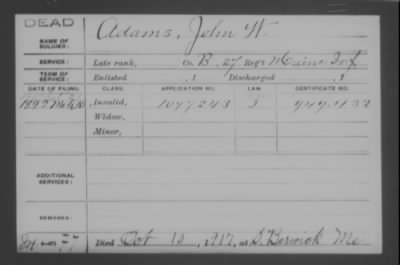 DEAD
NAME OF SOLDIER: Adams, John W.
SERVICE: Late rank, Co. B, 27 Reg't Maine Inf.
TERM OF SERVICE: Enlisted , 1 Discharged , 1
DATE OF FILING. CLASS. APPLICATION NO. LAW. CERTIFICATE NO.
1892 Invalid, 1097243
Widow,
Minor,
ADDITIONAL SERVICES:
REMARKS:
Died Oct 10, 1917, at S. Berwick Me